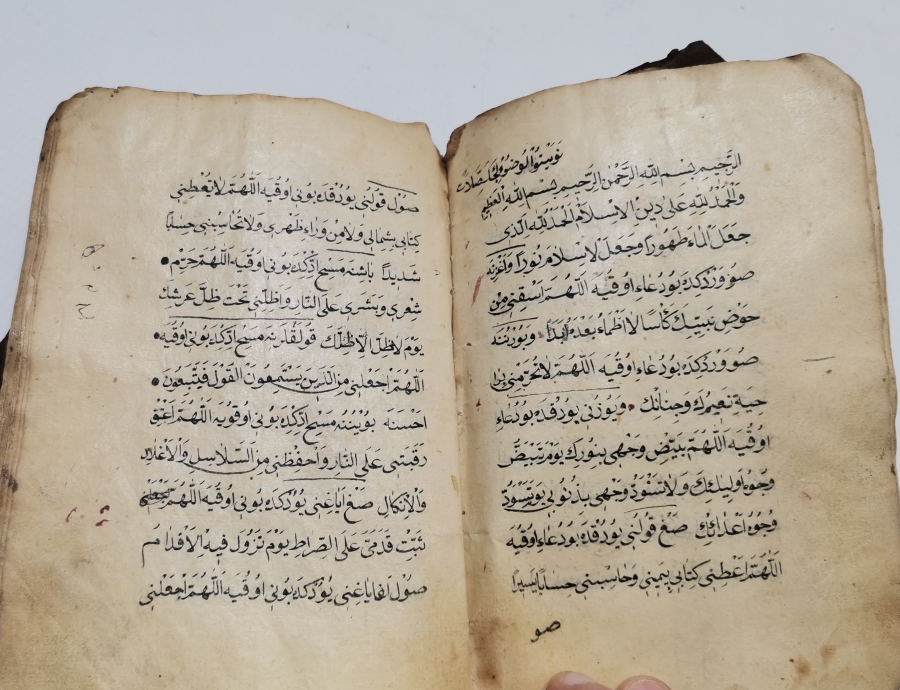 نويتو الوضو
الرجيم بسم الله الرحمن الرحيم بسم الله العظيم
والحمد لله على دين الاسلام الحمد لله الذى
جعل الماء طهورا وجعل الاسلام نورا واغزنه
صو وردكده بو دعاء اوقيه اللهم اسقنى من
حوض نبيك كأسا لا اظماء بعده ابدا وبورننه
صو وردكده بو دعاء اوقيه اللهم لا تحرمنى
نعيمك وجنانك ويوزنى يودقده بو دعاء
اوقيه اللهم بيض وجهى بنورك يوم تبيض
وجوه اوليائك ولا تسود وجهى بذنوبى يوم تسود
وجوه اعدائك صغ قولنى يودقده بو دعاء اوقيه
اللهم اعطنى كتابى بيمينى وحاسبنى حسابا يسيرا
صو
صول قولنى يودقده بونى اوقيه اللهم لا تعطنى
كتابى بشمالى ولا من وراء ظهرى ولا تحاسبنى حسابا
شديدا باشنه مسح اتدكده بونى اوقيه اللهم حرم
شعرى وبشرى على النار واظلنى تحت ظل عرشك
يوم لا ظل الا ظلك قولقلرينه مسح اتدكده بونى اوقيه
اللهم اجعلنى من الذين يستمعون القول فيتبعون
احسنه بوينينه مسح اتدكده بونى اوقويه اللهم اعتق
رقبتى على النار واحفظنى من السلاسل والاغلال
والانكال صغ اياغنى يودكده بونى اوقيه اللهم
ثبت قدمى على الصراط يوم تزول فيه الاقدام
صول اياغنى يودكده بونى اوقيه اللهم اجعلنى